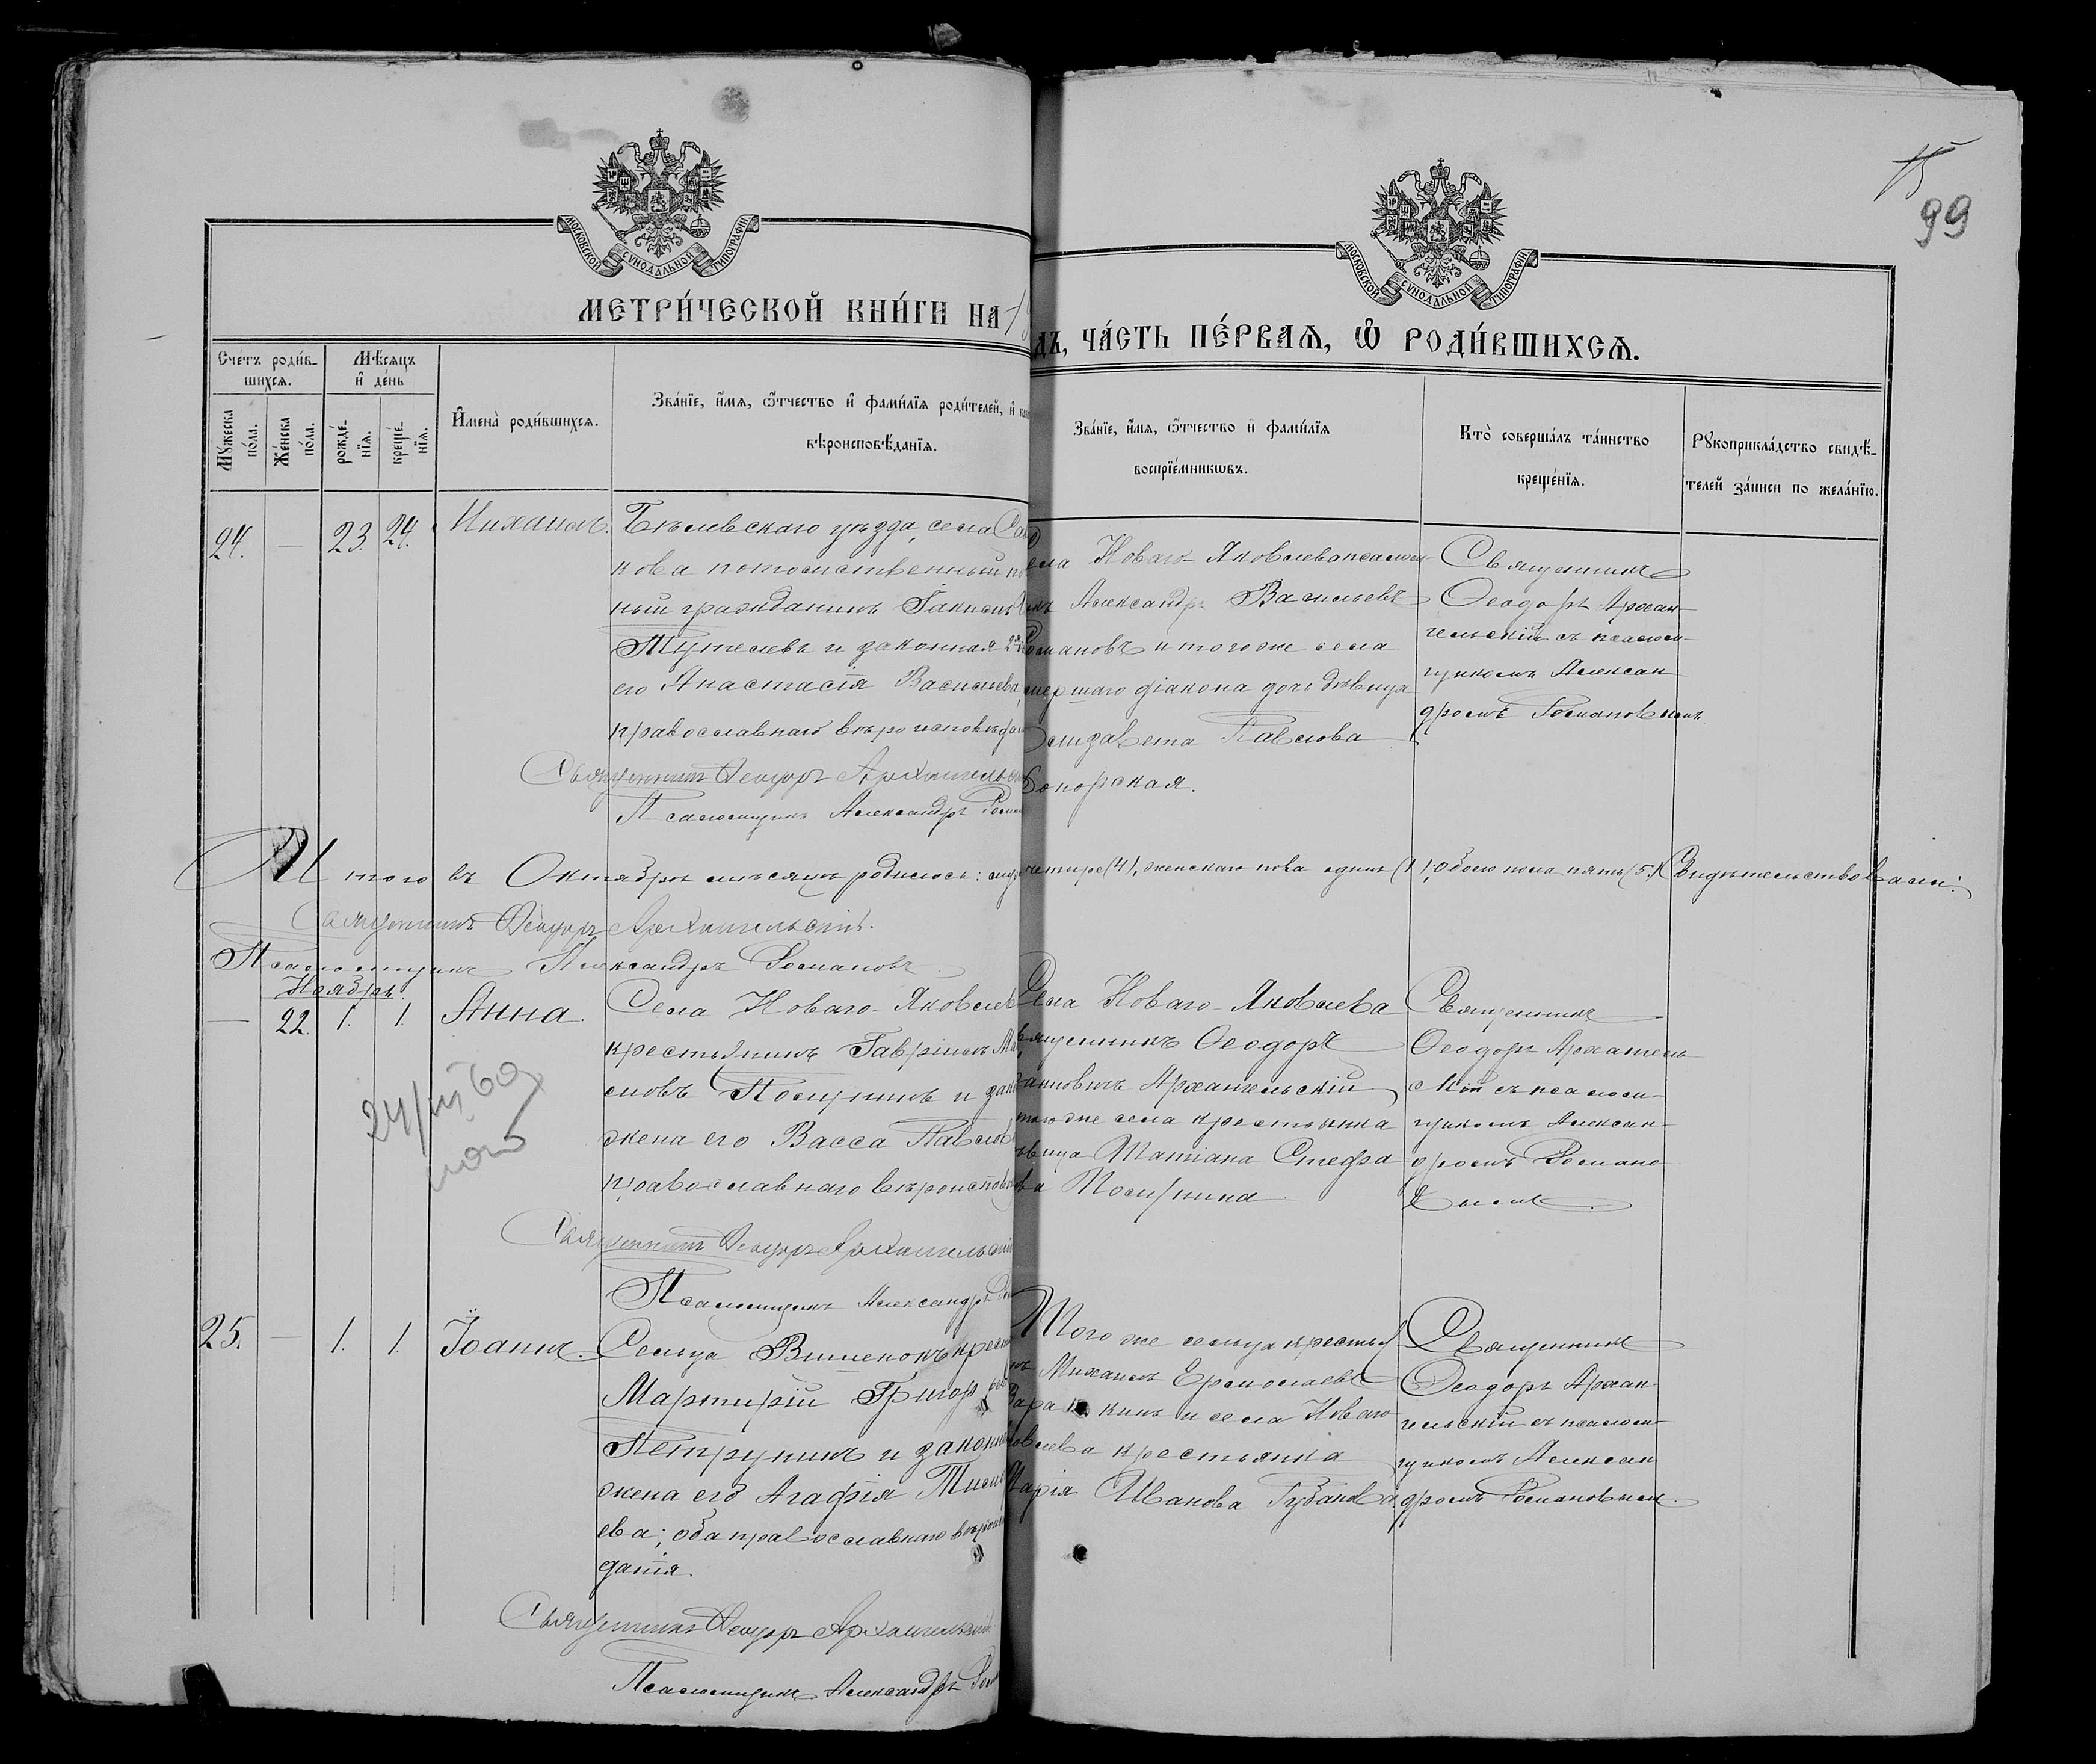 15
99
МОСКОВСКОЙ СѴНОДАЛЬНОЙ ТИПОГРАФІИ
МОСКОВСКОЙ СѴНОДАЛЬНОЙ ТИПОГРАФІИ
МЕТРИ́ЧЕСКОЙ КНИ́ГИ НА
ДЪ, ЧА́СТЬ ПЕ́РВАѦ, Ѿ РОДИ́ВШИХСѦ.
Сче́тъ роди́в-
шихсѧ.
Мѣ́сяцъ
и҆ де́нь
Мꙋ́жеска
по́ла.
Же́нска
по́ла.
рожде́-
нїѧ.
креще́-
нїѧ.
И҆мена̀ роди́вшихсѧ.
Зва́нїе, и҆́мѧ, ѻ҆́тчество и҆ фами́лїѧ роди́телей, и҆
вѣроисповѣ́данїѧ.
Зва́нїе, и҆́мѧ, ѻ҆́тчество и҆ фами́лїѧ
воспрїе́мникѡвъ.
Кто̀ соверша́лъ та́инство
креще́нїѧ.
Рꙋкоприкла́дство свидѣ́-
телей за́писи по жела́нїю.
24. — 23. 24. Михаилъ.
Бѣлевскаго уѣзда, села
кова потомственный
ный гражданинъ Іакимъ
и законная
его Анастасія Васильева,
православнаго вѣроисповѣдан
Священникъ Ѳеодоръ Архангельскі
Псаломщикъ Александръ Роман
села Новаго-Яковлева псалом-
Александръ Васильевъ
Романовъ и того же села
умершаго діакона дочь дѣвица
Елизавета Павлова
Священникъ
Ѳеодоръ Архан-
гельскій съ псалом-
щикомъ Алексан
дромъ Романовымъ.
Итого въ Октябрѣ мѣсяцѣ родилось: муж четыре (4), женскаго пола одинъ (1); обоего пола пять (5). Свидѣтельствовали:
Священникъ Ѳеодоръ Архангельскій.
Псаломщикъ Александръ Романовъ.
Ноябрь.
— 22. 1. 1. Анна.
Села Новаго-Яковлев
крестьянинъ Гавріилъ
и зако
жена его Васса Павлов
православнаго вѣроисповѣ
Священникъ Ѳеодоръ Архангельскій
Псаломщикъ Александръ
24/III 60
Села Новаго-Яковлева
священникъ Ѳеодоръ
Іоанновичъ Архангельскій
того же села крестьянка
дѣвица Татіана Стефа
нова
Священникъ
Ѳеодоръ Архангель
скій съ псалом-
щикомъ Алексан-
дромъ Романо-
вымъ.
25. — 1. 1. Іоаннъ.
Сельца крест
Мартирій Григорьев
Петрунинъ и законн
жена его Агафія
ева; оба православнаго вѣроиспо
данія.
Священникъ Ѳеодоръ Архангельскій
Псаломщикъ Александръ Роман
Того же сельца крестья
нъ Михаилъ Ермолаевъ
и села Новаго
Яковлева крестьянка
Марія Иванова Губанова.
Священникъ
Ѳеодоръ Архан-
гельскій съ псалом-
щикомъ Алексан
дромъ Романовымъ.